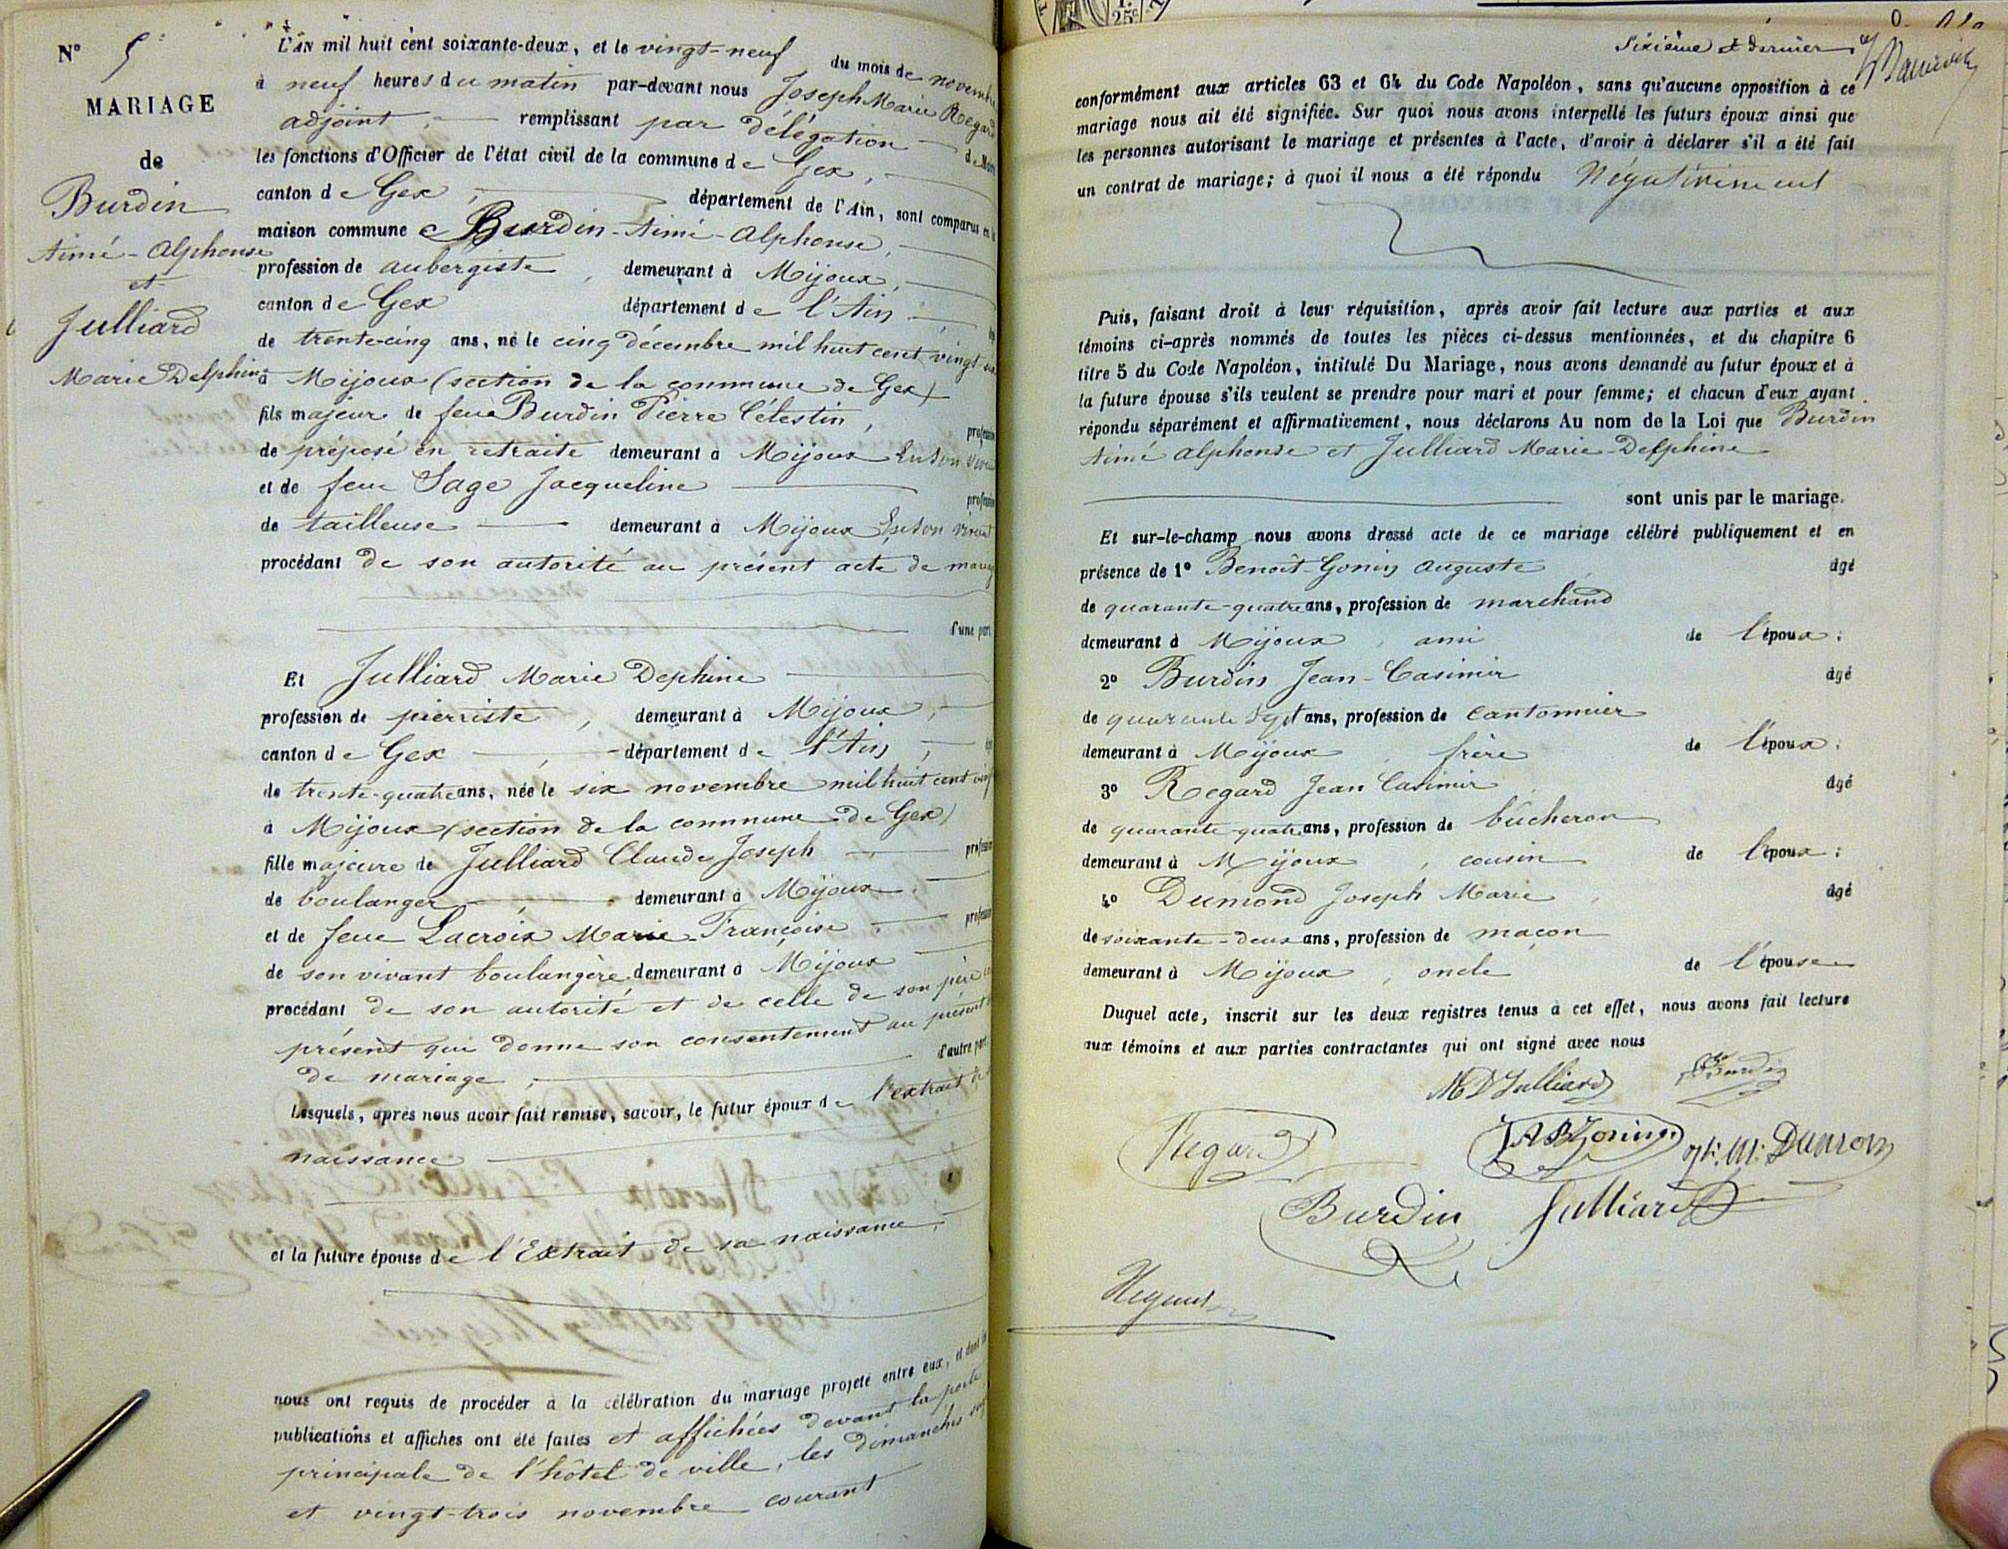 N° 5
MARIAGE
de
Burdin
Aimé-Alphonse
et
Julliard
Marie Delphine
L'AN mil huit cent soixante-deux, et le vingt-neuf du mois de novembre
à neuf heures du matin par-devant nous Joseph Marie Regard
adjoint, remplissant par délégation de Maire
les fonctions d'Officier de l'état civil de la commune de Gex,
canton de Gex, département de l'Ain, sont comparus en la
maison commune Burdin-Aimé-Alphonse,
profession de aubergiste, demeurant à Mijoux,
canton de Gex département de l'Ain,
de trente-cinq ans, né le cinq décembre mil huit cent vingt-six
à Mijoux (section de la commune de Gex)
fils majeur de feu Burdin Pierre Célestin, profession
de préposé en retraite demeurant à Mijoux En son vivant
et de feue Sage Jacqueline profession
de tailleuse demeurant à Mijoux En son vivant
procédant de son autorité au présent acte de mariage
d'une part
Et Julliard Marie Dephine
profession de pierriste, demeurant à Mijoux,
canton de Gex, département de l'Ain,
de trente-quatre ans, née le six novembre mil huit cent vingt
à Mijoux (section de la commune de Gex)
fille majeure de Julliard Claude Joseph profession
de boulanger, demeurant à Mijoux,
et de feue Lacroix Marie Françoise profession
de son vivant boulangère demeurant à Mijoux
procédant de son autorité et de celle de son père ici
présent qui donne son consentement au présent
de mariage, d'autre part.
Lesquels, après nous avoir fait remise, savoir, le futur époux de l'extrait de
naissance
et la future épouse de l'Extrait de sa naissance,
nous ont requis de procéder à la célébration du mariage projeté entre eux, et dont les
publications et affiches ont été faites et affichées devant la porte
principale de l'hôtel de ville, les dimanches
et vingt-trois novembre courant
Sixième et dernier
conformément aux articles 63 et 64 du Code Napoléon, sans qu'aucune opposition à ce
mariage nous ait été signifiée. Sur quoi nous avons interpellé les futurs époux ainsi que
les personnes autorisant le mariage et présentes à l'acte, d'avoir à déclarer s'il a été fait
un contrat de mariage; à quoi il nous a été répondu Négativement
Puis, faisant droit à leur réquisition, après avoir fait lecture aux parties et aux
témoins ci-après nommés de toutes les pièces ci-dessus mentionnées, et du chapitre 6
titre 5 du Code Napoléon, intitulé Du Mariage, nous avons demandé au futur époux et à
la future épouse s'ils veulent se prendre pour mari et pour femme; et chacun d'eux ayant
répondu séparément et affirmativement, nous déclarons Au nom de la Loi que Burdin
Aimé Alphonse et Julliard Marie-Delphine
sont unis par le mariage.
Et sur-le-champ nous avons dressé acte de ce mariage célébré publiquement et en
présence de 1° Benoît-Gonin Auguste âgé
de quarante-quatre ans, profession de marchand
demeurant à Mijoux, ami de l'époux;
2° Burdin Jean-Casimir âgé
de quarante sept ans, profession de Cantonnier
demeurant à Mijoux, frère de l'époux;
3° Regard Jean Casimir, âgé
de quarante-quatre ans, profession de bûcheron
demeurant à Mijoux, cousin de l'époux;
4° Dumond Joseph Marie, âgé
de soixante-deux ans, profession de maçon
demeurant à Mijoux, oncle de l'épouse
Duquel acte, inscrit sur les deux registres tenus à cet effet, nous avons fait lecture
aux témoins et aux parties contractantes qui ont signé avec nous
M D Julliard Burdin
Regard A B Gonin Dumon
Burdin Julliard
Regard